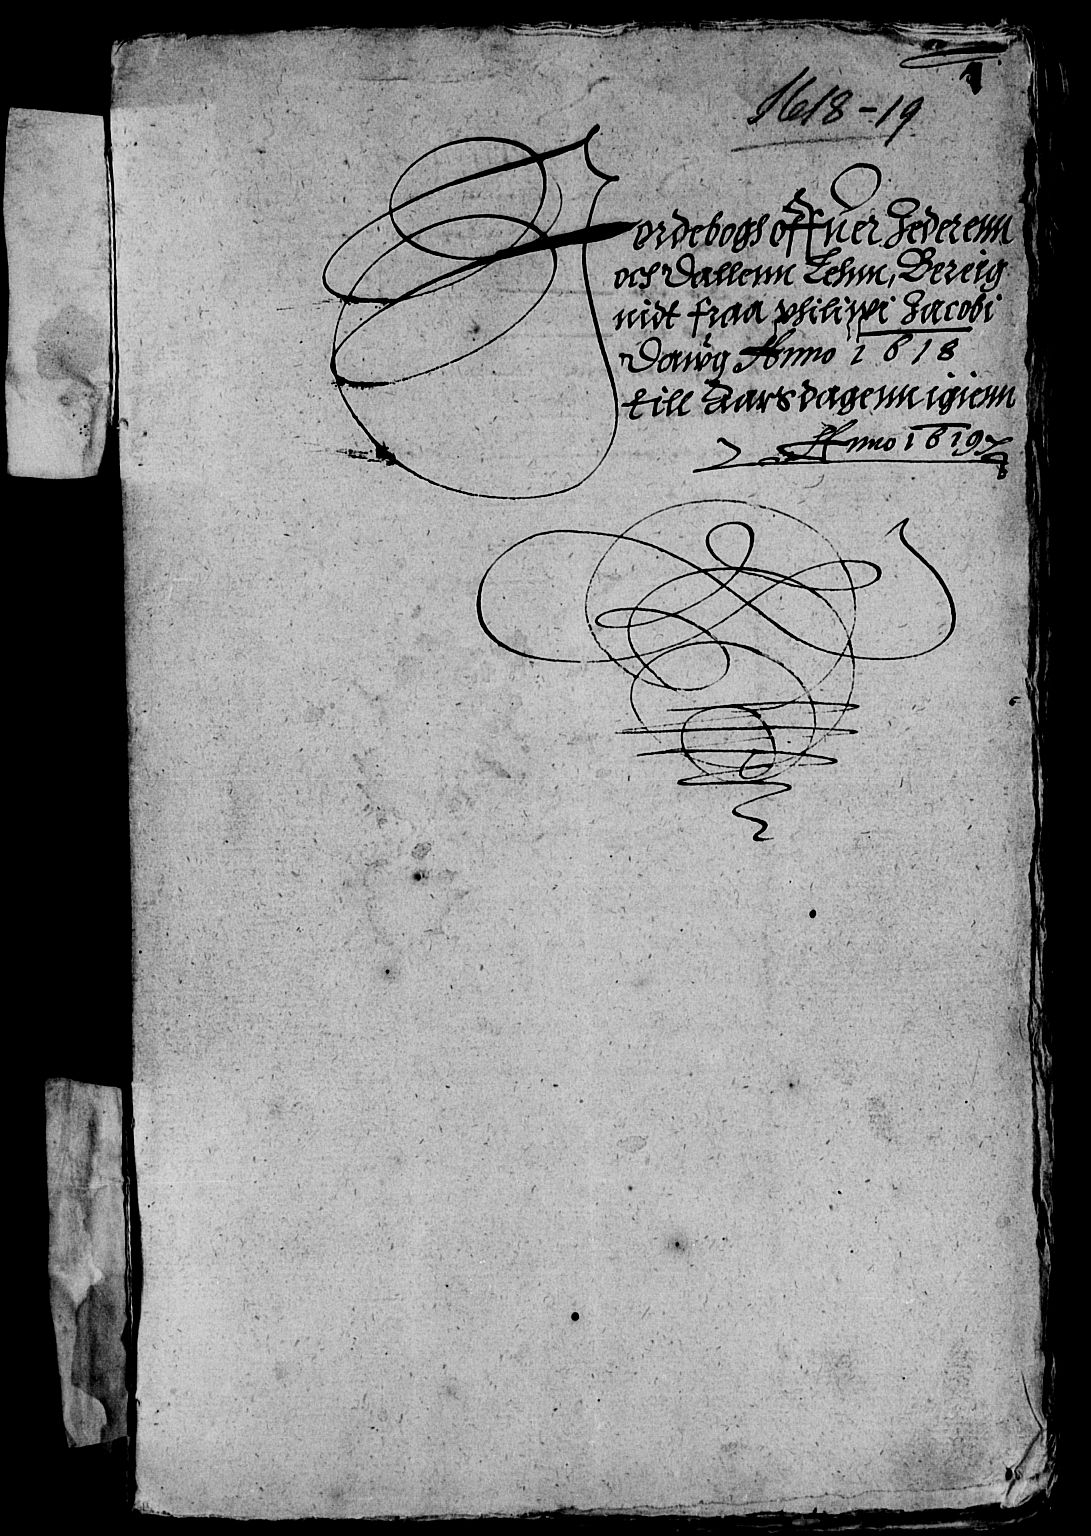 1
1618-19
Jordebogh offuer Jederenn
och Dallenn Lehnn, Bereig
nidt fraa philippi Jacobi
Dawg Anno 1618
till Aarsdagenn igienn
Anno 1619